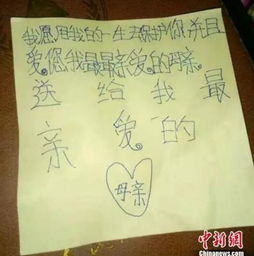 我愿用我的一生去保护你并且
爱。您我最最亲爱的母亲。
送给我最
亲爱的
母亲
中新网
Chinanews.com